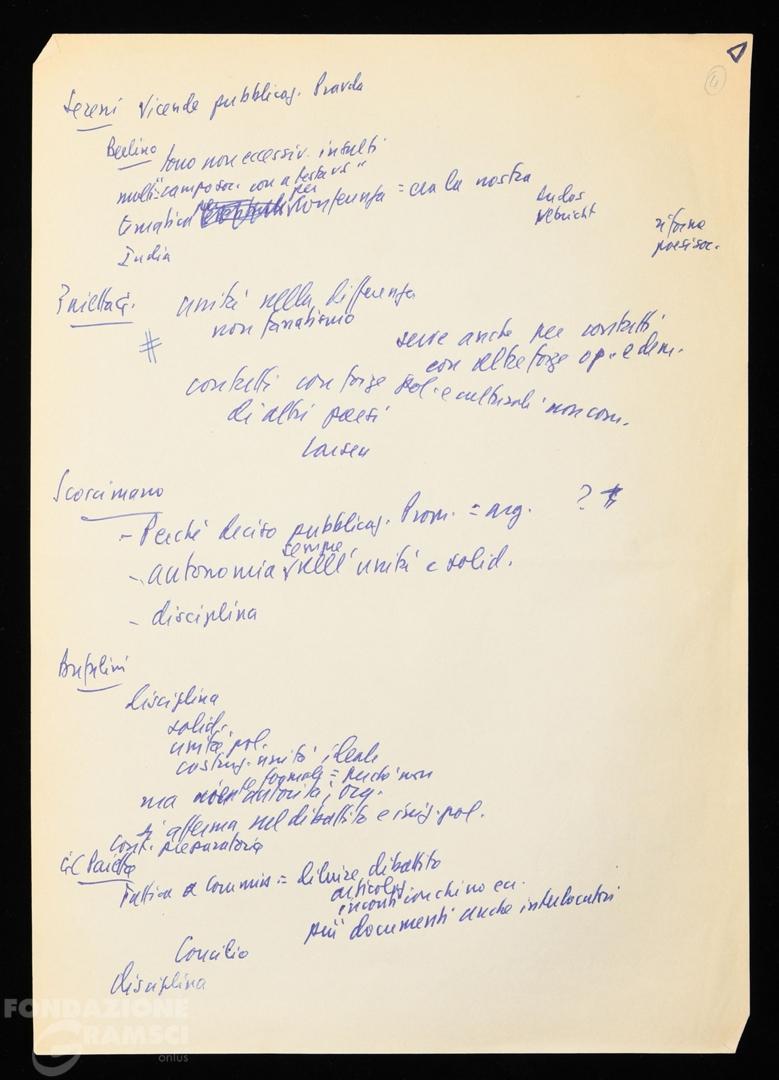 4
Sereni Vicende pubblicaz. Pravda
Berlino tono non eccessiv. insulti
multi "campo soc. con a testa vs"
tematica per conferenza = era la nostra
India
riforma
paesi soc.
unità nella differenza
non fanatismo
serve anche per contatti
con altre forze op. e dem.
contatti con forze pol. e culturali non com.
di altri paesi
Larsen
Scoccimarro
- Perché deciso pubblicaz. Prom. = arg. ?
- autonomia sempre nell'unità e solid.
- disciplina
Bufalini
disciplina
solid.
unità pol.
costruz. unità ideale
ma niente formale =
autorità, org.
si afferma nel dibattito e iniz. pol.
conf. preparatoria
GC Paietta
Fattiva a Commis = diluire dibattito
articoli
incontri
più documenti anche interlocutori
Concilio
disciplina
FONDAZIONE
GRAMSCI
onlus